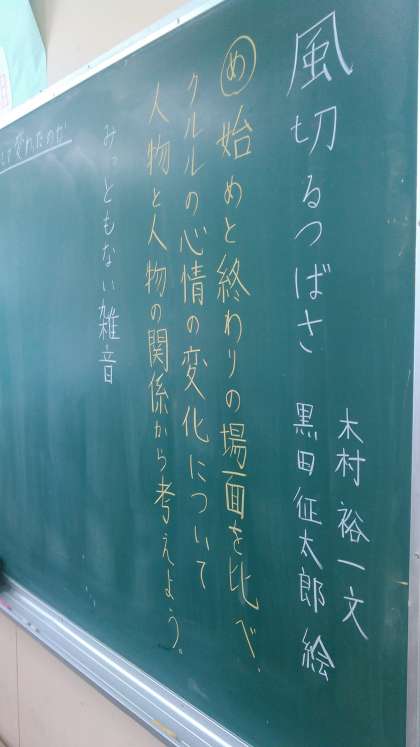 風切るつばさ
木村裕一文
黒田征太郎 絵
め 始めと終わりの場面を比べ、
クルルの心情の変化について
人物と人物の関係から考えよう。
みっともない雑音
して変わったのか